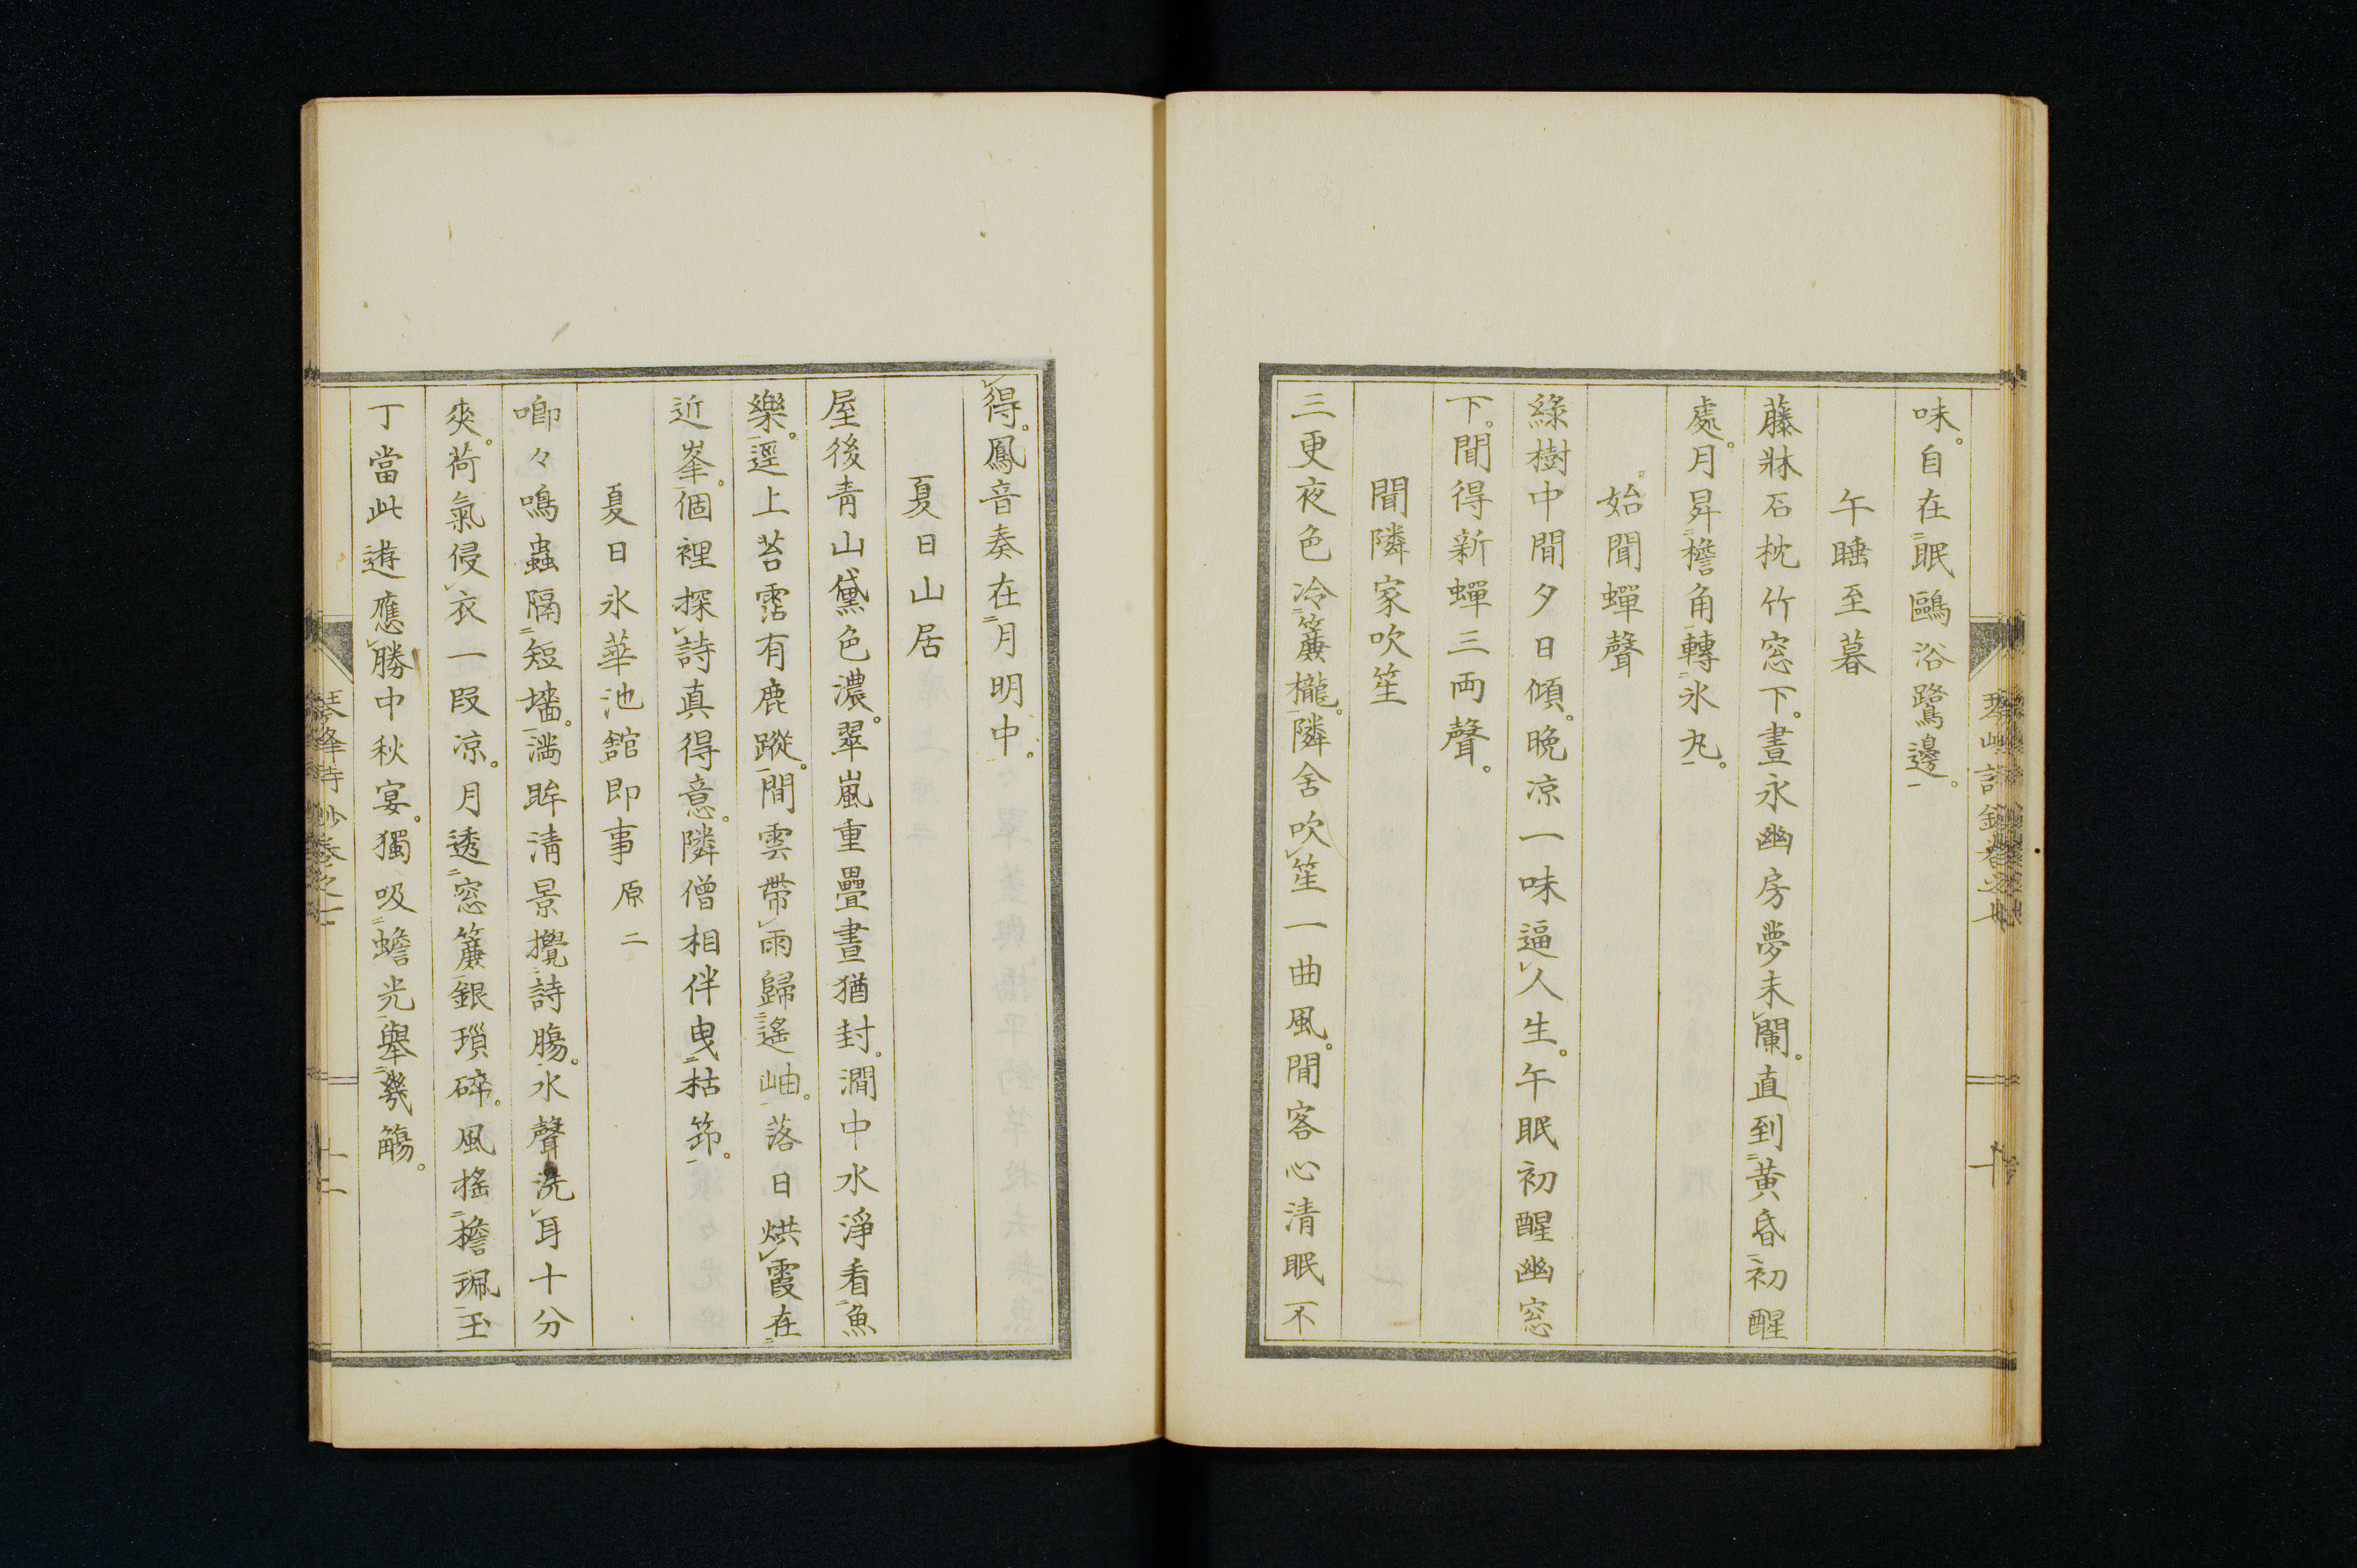 味。自在二眠鷗浴鷺邊一。
午睡至暮
藤牀石枕竹窓下。晝永幽房夢未レ闌。直到二黄昏一初醒
處。月昇二檐角一轉二氷丸一。
始聞蟬聲
綠樹中間夕日傾。晩凉一味逼レ人生。午眠初醒幽窓
下。間得新蟬三両聲。
聞隣家吹笙
三更夜色冷二簾櫳一。隣舍吹レ笙一曲風。間客心清眠不
レ得。鳳音奏在二月明中一。
夏日山居
屋後青山黛色濃。翠嵐重疊晝猶封。澗中水淨看二魚
樂一。逕上苔霑有鹿蹤。間雲帶レ雨歸二遙岫一。落日烘レ霞在二
近峯一。個裡探レ詩真得意。隣僧相伴曳二枯筇一。
夏日氷華池舘即事 原二
喞々鳴蟲隔二短墻一。満眸清景攪二詩膓一。水聲洗レ耳十分
爽。荷氣侵レ衣一段凉。月透二窓簾一銀瑣碎。風搖二檐珮一玉
丁當此遊應レ勝中秋宴。獨吸二蟾光一擧二幾觴一。
琴峰詩鈔卷之七